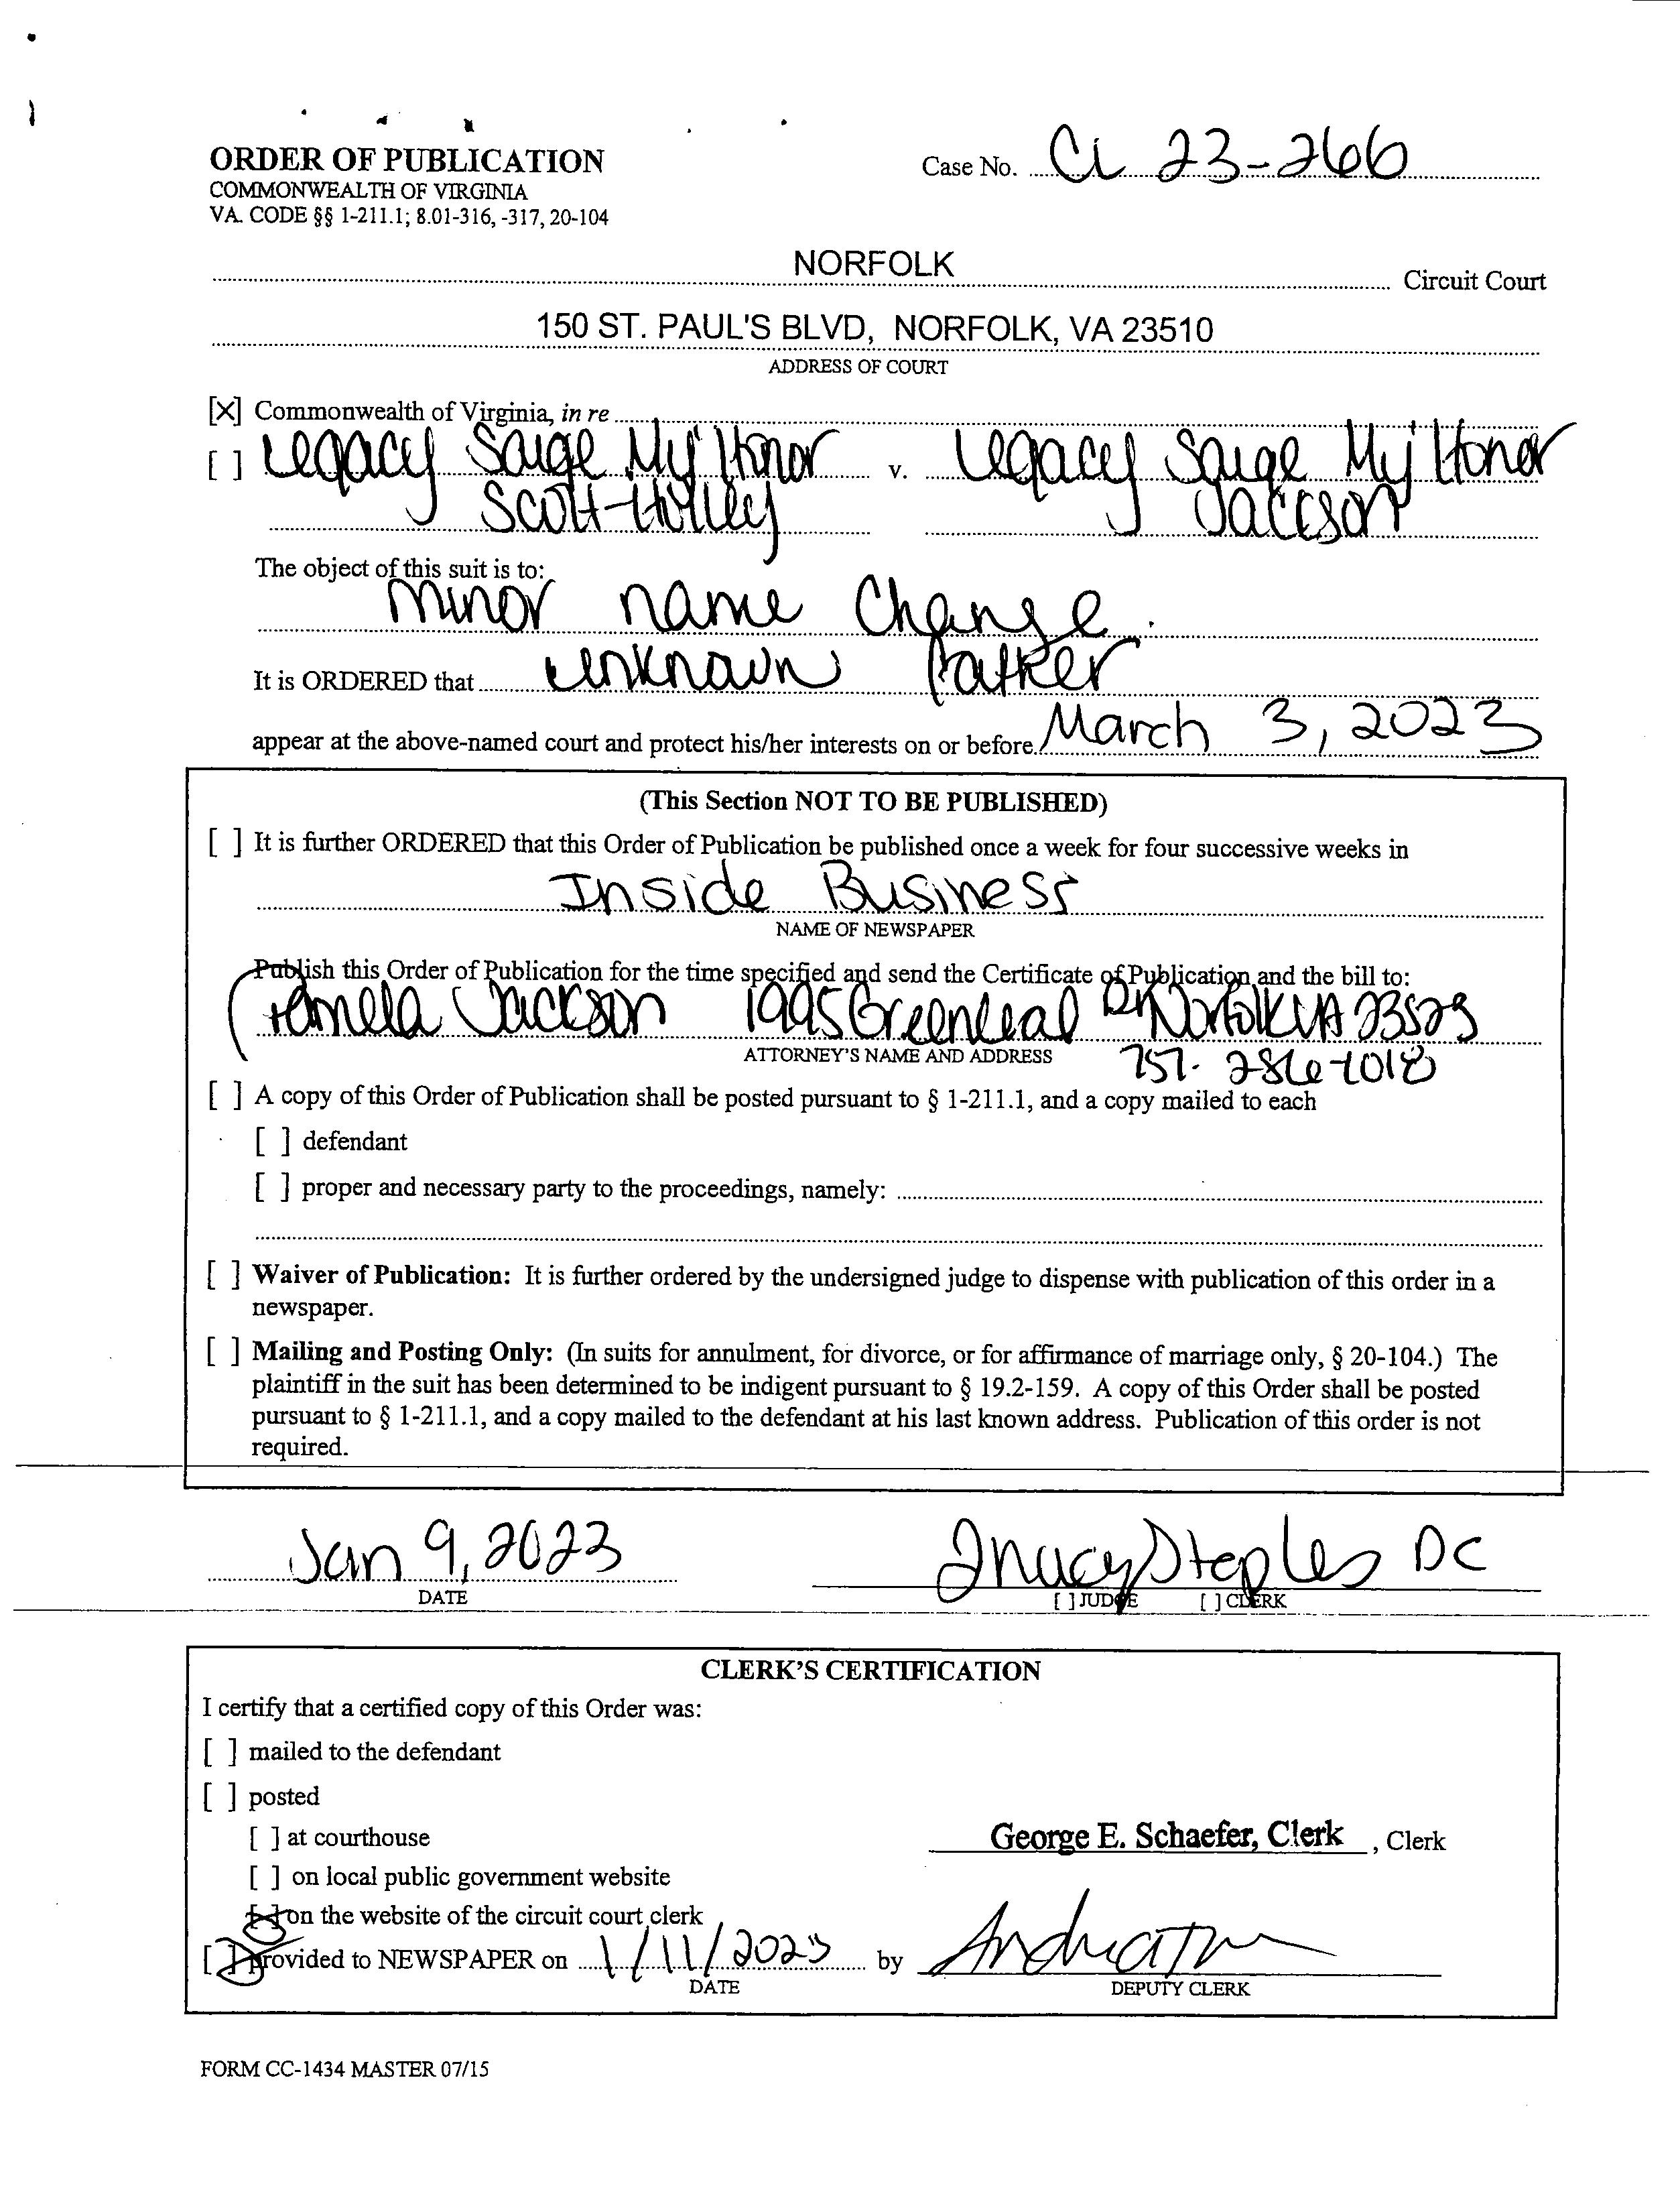 ORDER OF PUBLICATION
COMMONWEALTH OF VIRGINIA
VA. CODE §§ 1-211.1; 8.01-316, -317, 20-104
Case No. CL 23-266
NORFOLK Circuit Court
150 ST. PAUL'S BLVD, NORFOLK, VA 23510
ADDRESS OF COURT
[X] Commonwealth of Virginia, in re
[ ] Legacy Saige My'Honor v. Legacy Saige My'Honor
Scott-Holley Jackson
The object of this suit is to:
minor name Change.
It is ORDERED that unknown Father
appear at the above-named court and protect his/her interests on or before March 3, 2023
(This Section NOT TO BE PUBLISHED)
[ ] It is further ORDERED that this Order of Publication be published once a week for four successive weeks in
Inside Business
NAME OF NEWSPAPER
Publish this Order of Publication for the time specified and send the Certificate of Publication and the bill to:
Pamela Jackson 1995 Greenleaf Dr Norfolk VA 23523
ATTORNEY'S NAME AND ADDRESS
757-
[ ] A copy of this Order of Publication shall be posted pursuant to § 1-211.1, and a copy mailed to each
[ ] defendant
[ ] proper and necessary party to the proceedings, namely:
[ ] Waiver of Publication: It is further ordered by the undersigned judge to dispense with publication of this order in a
newspaper.
[ ] Mailing and Posting Only: (In suits for annulment, for divorce, or for affirmance of marriage only, § 20-104.) The
plaintiff in the suit has been determined to be indigent pursuant to § 19.2-159. A copy of this Order shall be posted
pursuant to § 1-211.1, and a copy mailed to the defendant at his last known address. Publication of this order is not
required.
Jan 9, 2023 Tracy Staples DC
DATE [ ] JUDGE [ ] CLERK
CLERK'S CERTIFICATION
I certify that a certified copy of this Order was:
[ ] mailed to the defendant
[ ] posted
[ ] at courthouse
George E. Schaefer, Clerk , Clerk
[ ] on local public government website
[x] on the website of the circuit court clerk
[x] Provided to NEWSPAPER on 1/11/2023 by
DATE DEPUTY CLERK
FORM CC-1434 MASTER 07/15